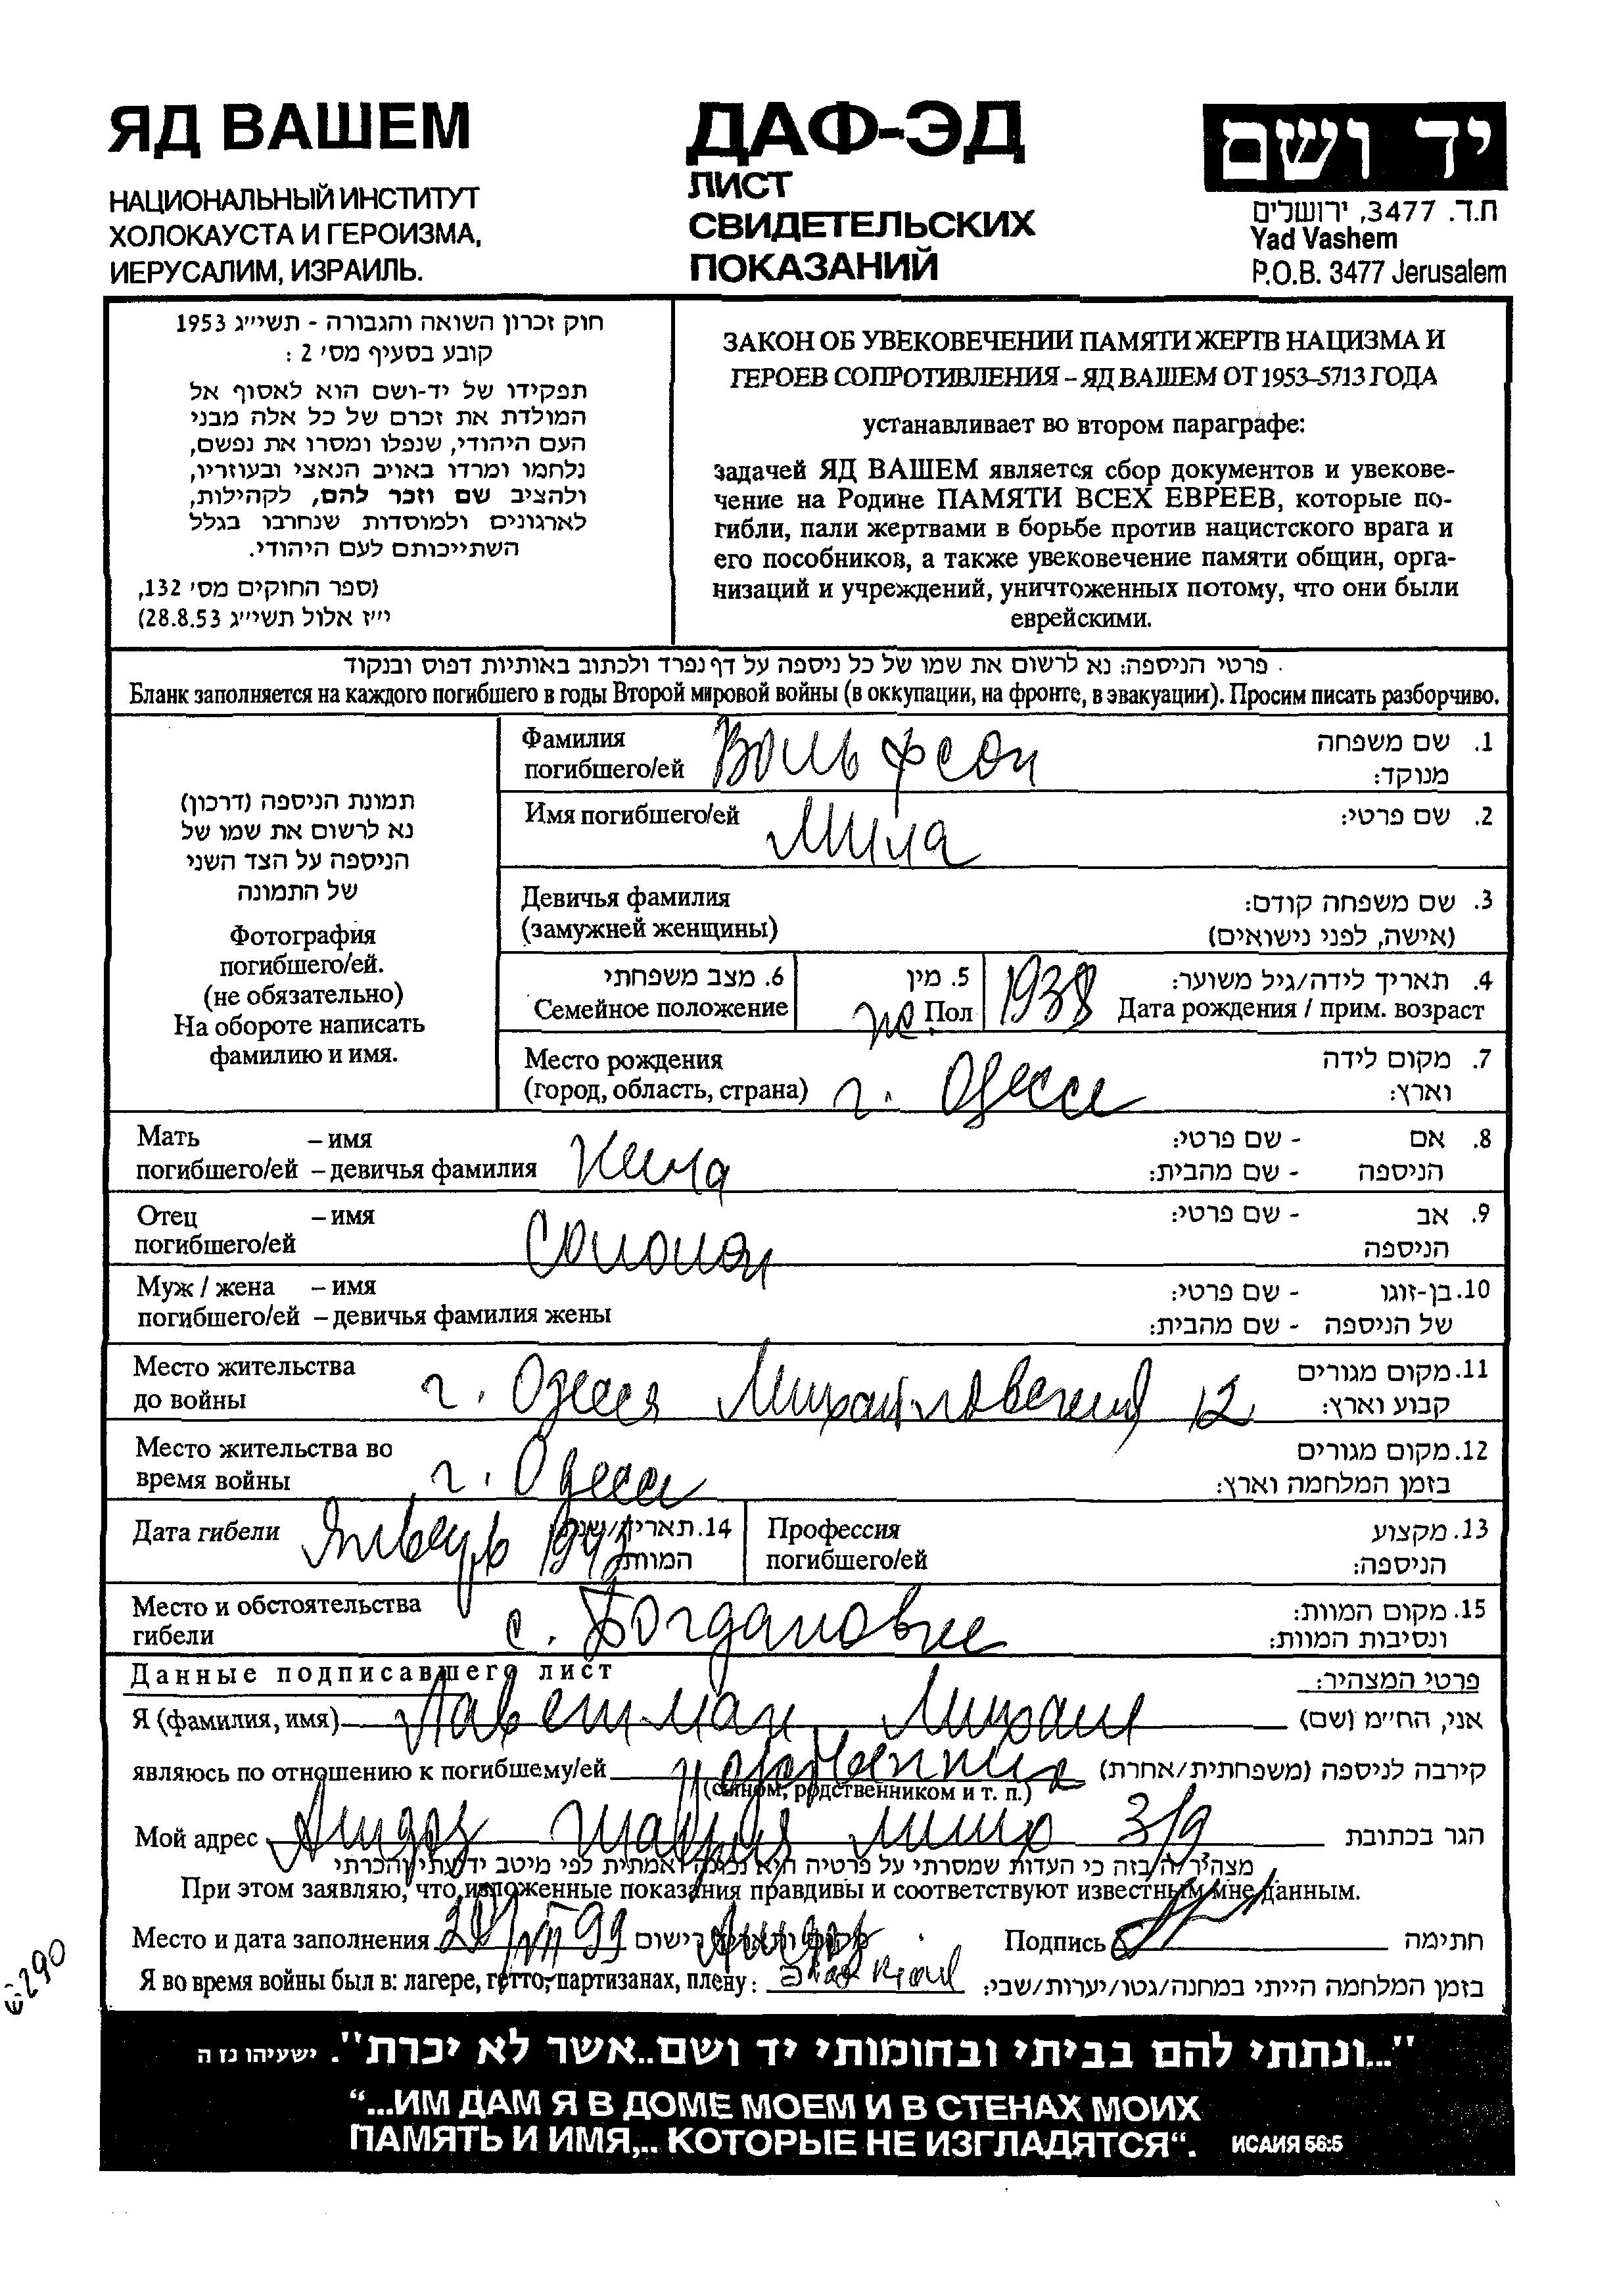 ЯД ВАШЕМ
НАЦИОНАЛЬНЫЙ ИНСТИТУТ
ХОЛОКАУСТА И ГЕРОИЗМА,
ИЕРУСАЛИМ, ИЗРАИЛЬ.
ДАФ-ЭД
ЛИСТ
СВИДЕТЕЛЬСКИХ
ПОКАЗАНИЙ
יד ושם
ת.ד. 3477, ירושלים
Yad Vashem
P.O.B. 3477 Jerusalem
חוק זכרון השואה והגבורה - תשי״ג 1953
קובע בסעיף מס׳ 2 :
תפקידו של יד-ושם הוא לאסוף אל
המולדת את זכרם של כל אלה מבני
העם היהודי, שנפלו ומסרו את נפשם,
נלחמו ומרדו באויב הנאצי ובעוזריו,
ולהציב שם וזכר להם, לקהילות,
לארגונים ולמוסדות שנחרבו בגלל
השתייכותם לעם היהודי.
(ספר החוקים מס׳ 132,
י״ז אלול תשי״ג 28.8.53)
ЗАКОН ОБ УВЕКОВЕЧЕНИИ ПАМЯТИ ЖЕРТВ НАЦИЗМА И
ГЕРОЕВ СОПРОТИВЛЕНИЯ – ЯД ВАШЕМ ОТ 1953–5713 ГОДА
устанавливает во втором параграфе:
задачей ЯД ВАШЕМ является сбор документов и увекове-
чение на Родине ПАМЯТИ ВСЕХ ЕВРЕЕВ, которые по-
гибли, пали жертвами в борьбе против нацистского врага и
его пособников, а также увековечение памяти общин, орга-
низаций и учреждений, уничтоженных потому, что они были
еврейскими.
פרטי הניספה: נא לרשום את שמו של כל ניספה על דף נפרד ולכתוב באותיות דפוס ובנקוד
Бланк заполняется на каждого погибшего в годы Второй мировой войны (в оккупации, на фронте, в эвакуации). Просим писать разборчиво.
תמונת הניספה (דרכון)
נא לרשום את שמו של
הניספה על הצד השני
של התמונה
Фотография
погибшего/ей.
(не обязательно)
На обороте написать
фамилию и имя.
Фамилия Вольфсон 1. שם משפחה
погибшего/ей מנוקד:
Имя погибшего/ей Мила 2. שם פרטי:
Девичья фамилия 3. שם משפחה קודם:
(замужней женщины) (אישה, לפני נישואים)
6. מצב משפחתי 5. מין 1938 4. תאריך לידה/גיל משוער:
Семейное положение Пол Дата рождения / прим. возраст
Место рождения 7. מקום לידה
(город, область, страна) г. Одесса וארץ:
Мать – имя 8. אם - שם פרטי:
погибшего/ей – девичья фамилия הניספה - שם מהבית:
Отец – имя 9. אב - שם פרטי:
погибшего/ей Соломон הניספה
Муж / жена – имя 10. בן-זוגו - שם פרטי:
погибшего/ей – девичья фамилия жены של הניספה - שם מהבית:
Место жительства 11. מקום מגורים
до войны г. Одесса Михайловская 12 קבוע וארץ:
Место жительства во 12. מקום מגורים
время войны г. Одесса בזמן המלחמה וארץ:
Дата гибели Январь 14. תאריך/שנת Профессия 13. מקצוע
המוות: погибшего/ей הניספה:
Место и обстоятельства 15. מקום המוות:
гибели с. Богдановка ונסיבות המוות:
Данные подписавшего лист פרטי המצהיר:
Я (фамилия, имя) Михаил אני, הח״מ (שם)
являюсь по отношению к погибшему/ей קירבה לניספה (משפחתית/אחרת)
(сыном, родственником и т. п.)
Мой адрес Ашдод 3/9 הגר בכתובת
מצהיר/ה בזה כי העדות שמסרתי על פרטיה היא נכונה ואמתית לפי מיטב ידיעתי והכרתי
При этом заявляю, что изложенные показания правдивы и соответствуют известным мне данным.
Место и дата заполнения מקום ותאריך רישום Ашдод Подпись חתימה
Я во время войны был в: лагере, гетто, партизанах, плену: בזמן המלחמה הייתי במחנה/גטו/יערות/שבי:
290
"...ונתתי להם בביתי ובחומותי יד ושם..אשר לא יכרת". ישעיהו נז ה
“...ИМ ДАМ Я В ДОМЕ МОЕМ И В СТЕНАХ МОИХ
ПАМЯТЬ И ИМЯ,.. КОТОРЫЕ НЕ ИЗГЛАДЯТСЯ“. ИСАИЯ 56:5